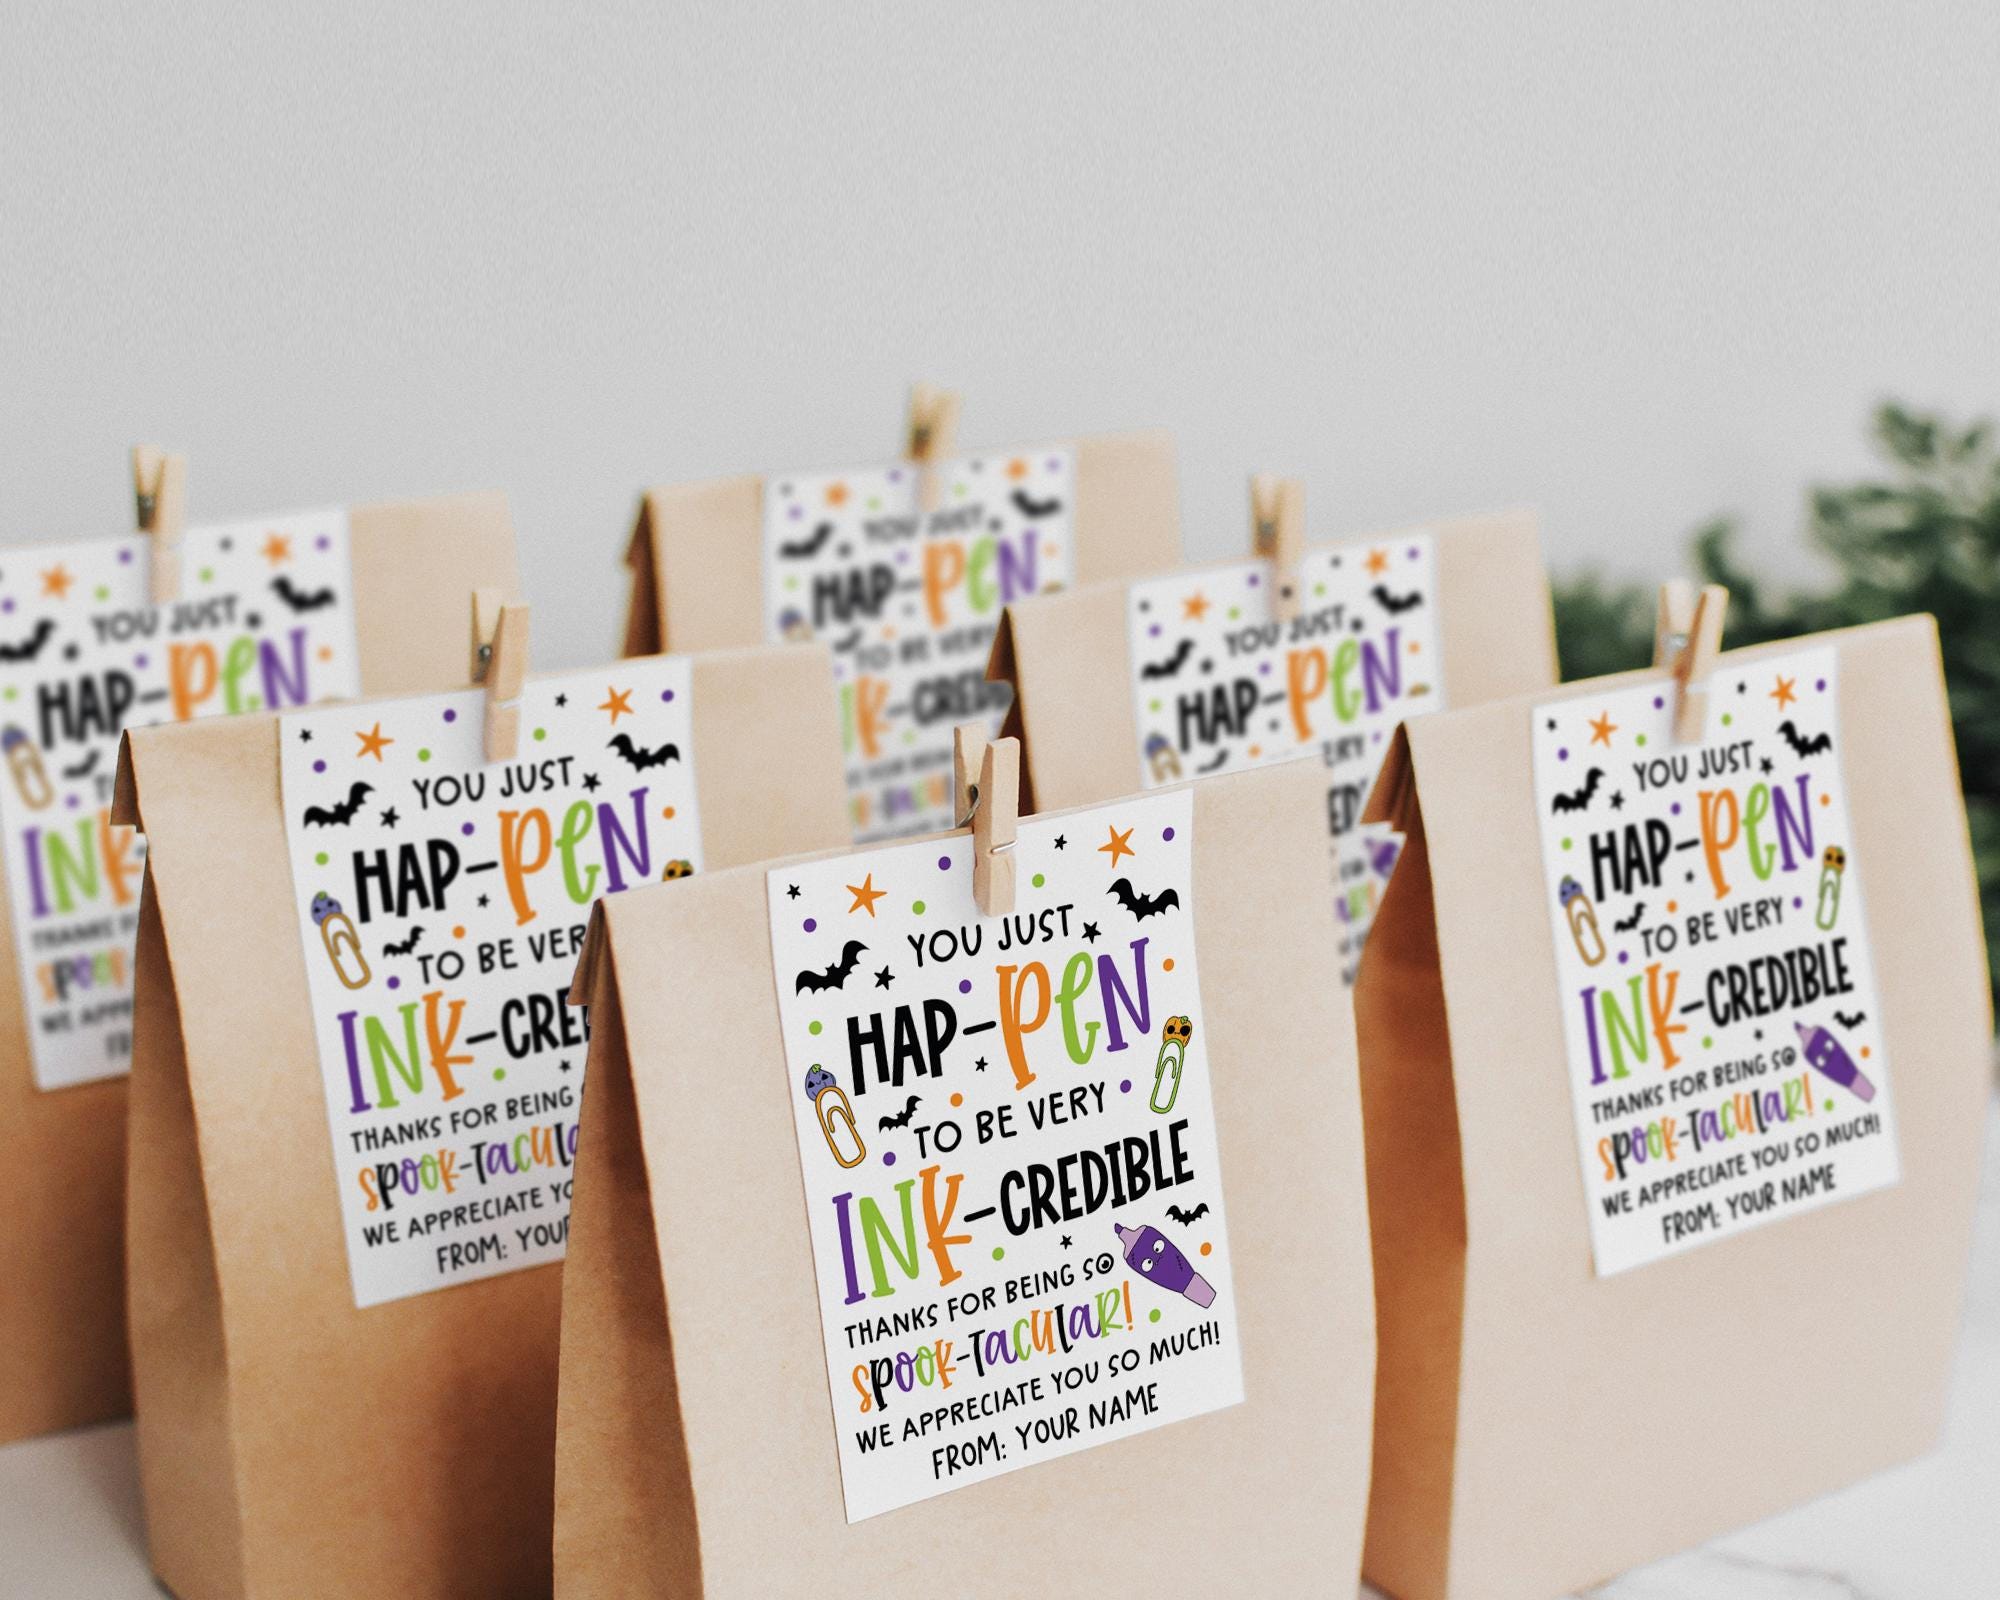 YOU JUST
HAP-PEN
YOU JUST
HAP-PEN
TO BE VERY
INK-CREDIBLE
YOU JUST
HAP-PEN
ERY
YOU JUST
HAP-PEN
INK-
THANKS
SPOOK
WE APP
YOU JUST
HAP-PEN
TO BE VER
INK-CRE
THANKS FOR BEING
SPOOK-TACULA
WE APPRECIATE YO
FROM: YOUR
YOU JUST
HAP-PEN
TO BE VERY
INK-CREDIBLE
THANKS FOR BEING SO
SPOOK-TACULAR!
WE APPRECIATE YOU SO MUCH!
FROM: YOUR NAME
YOU JUST
HAP-PEN
TO BE VERY
INK-CREDIBLE
THANKS FOR BEING SO
SPOOK-TACULAR!
WE APPRECIATE YOU SO MUCH!
FROM: YOUR NAME